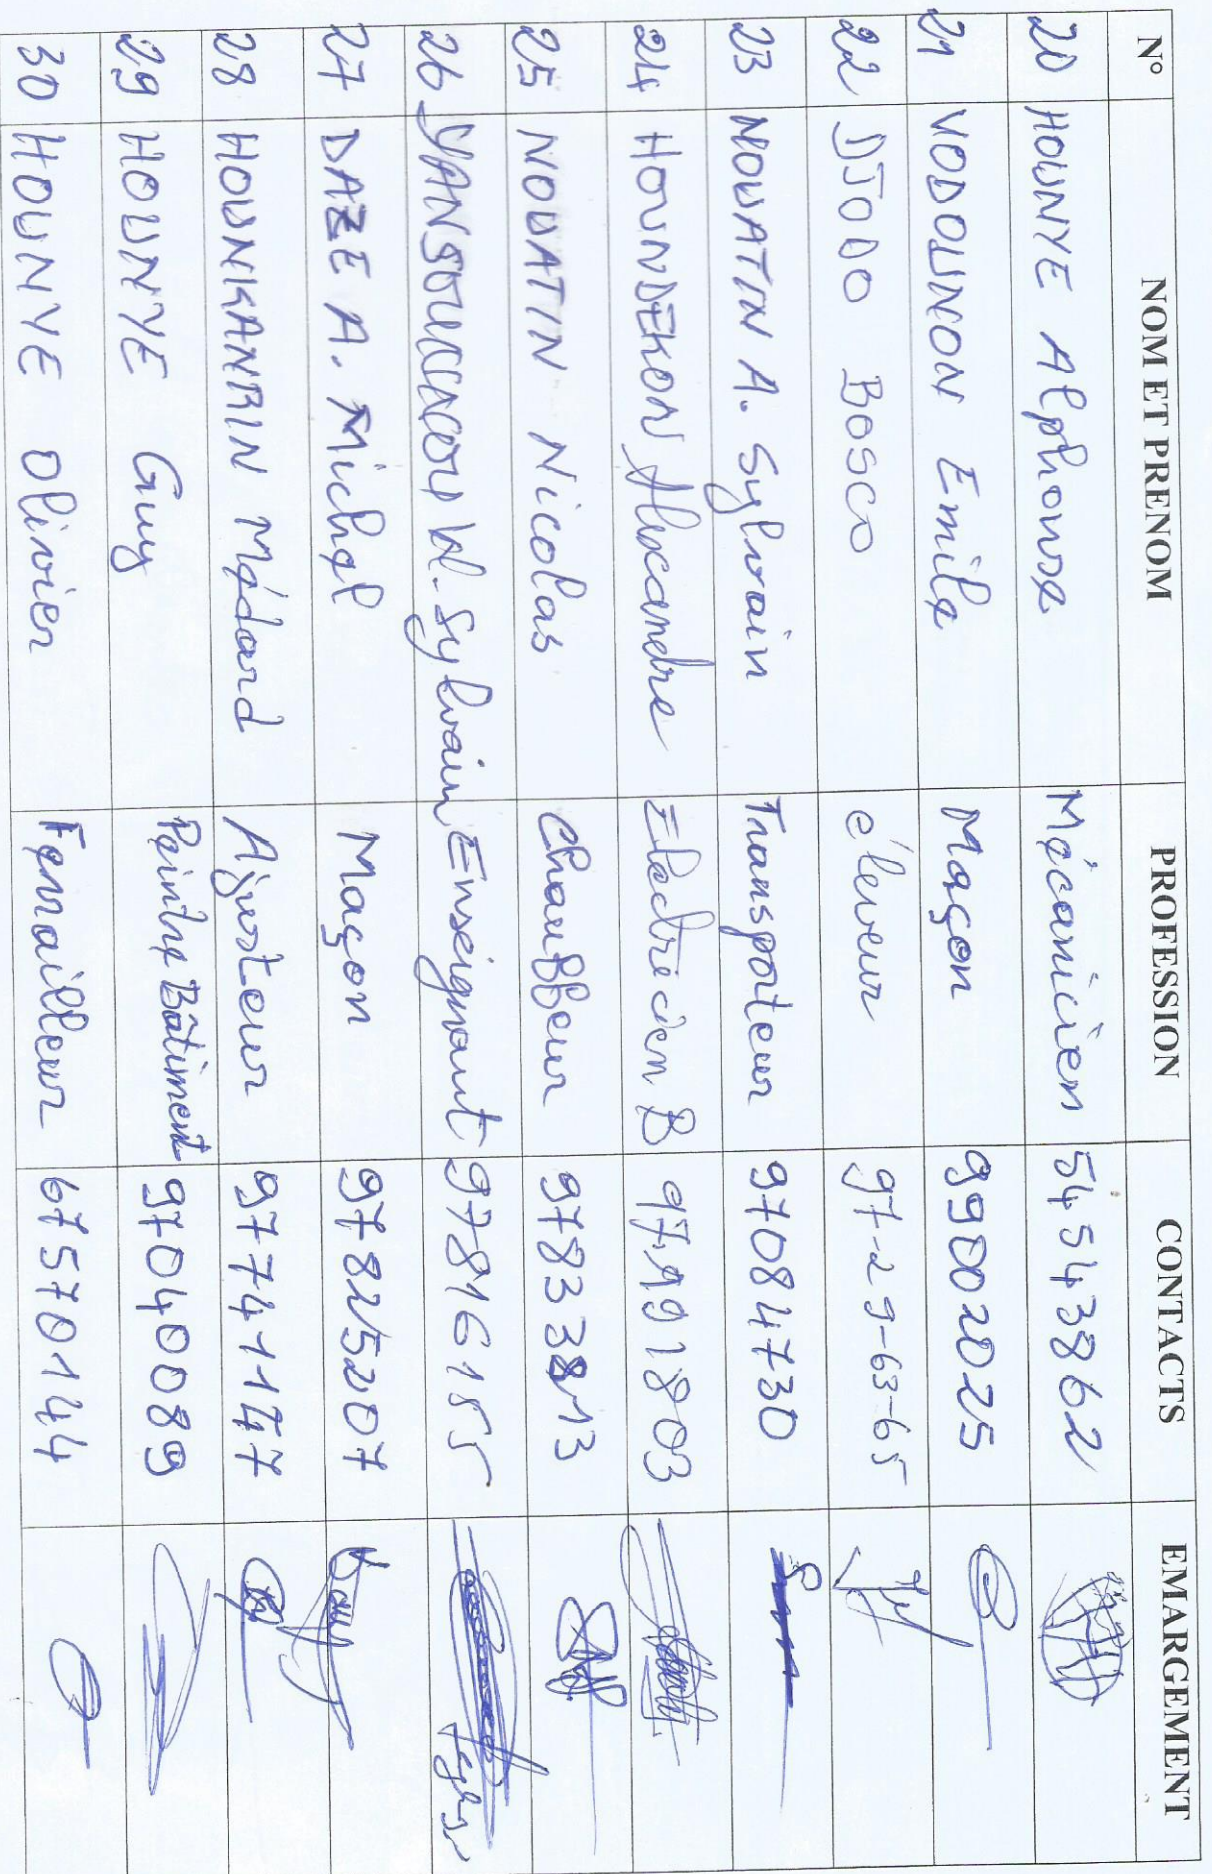 N° NOM ET PRENOM PROFESSION CONTACTS EMARGEMENT
20 HOUNYE Alphonse Mécanicien 54543862
21 VODOUNON Emile Maçon 99002025
22 DJODO BOSCO éleveur 97-29-63-65
23 NOUATIN A. Sylvain Transporteur 97084730
24 HOUNDEKON Alexandre Electricien B 97191803
25 NOUATIN Nicolas Chauffeur 97833813
26 W. Sylvain Enseignant 97816155
27 DAZE A. Michel Maçon 97825207
28 HOUNKANRIN Médard Ajusteur 97741147
29 HOUNYE Guy Peintre Bâtiment 97040089
30 HOUNYE Olivier Ferrailleur 67570144